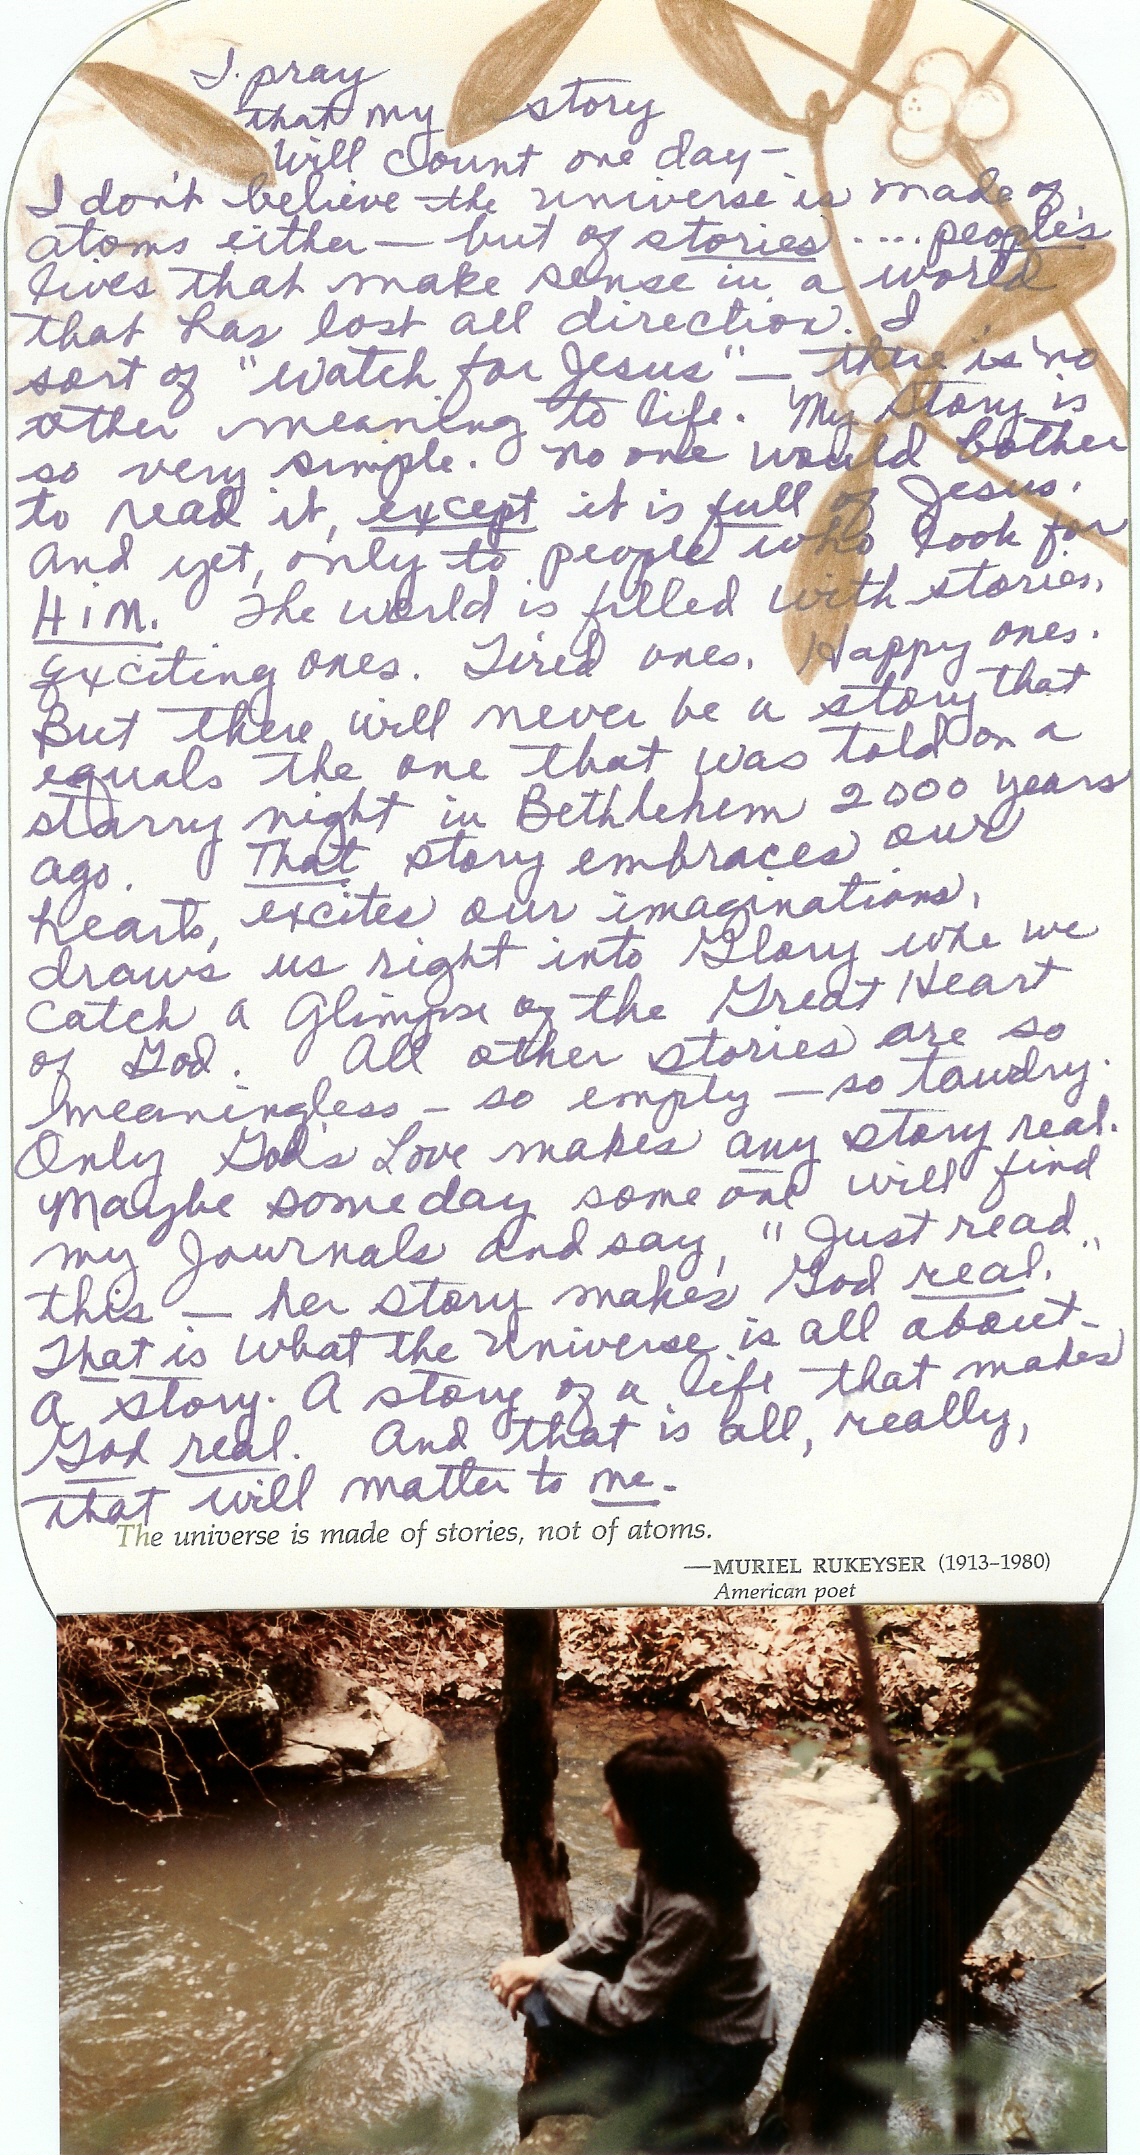 I pray
that my story
will count one day—
I don't believe the universe is made of
atoms either — but of stories .... people's
lives that make sense in a world
that has lost all direction. I
sort of "watch for Jesus" — there is no
other meaning to life. My story is
so very simple. No one would bother
to read it, except it is full of Jesus.
And yet, only to people who look for
HiM. The world is filled with stories.
Exciting ones. Tired ones. Happy ones.
But there will never be a story that
equals the one that was told on a
starry night in Bethlehem 2000 years
ago. That story embraces our
hearts, excites our imaginations,
draws us right into Glory whe we
catch a Glimpse of the Great Heart
of God. All other stories are so
meaningless — so empty — so tawdry.
Only God's Love makes any story real.
Maybe someday some one will find
my Journals and say, "Just read
this — her story makes God real."
That is what the Universe is all about—
a story. A story of a life that makes
God real. And that is all, really,
that will matter to me.
The universe is made of stories, not of atoms.
—MURIEL RUKEYSER (1913–1980)
American poet